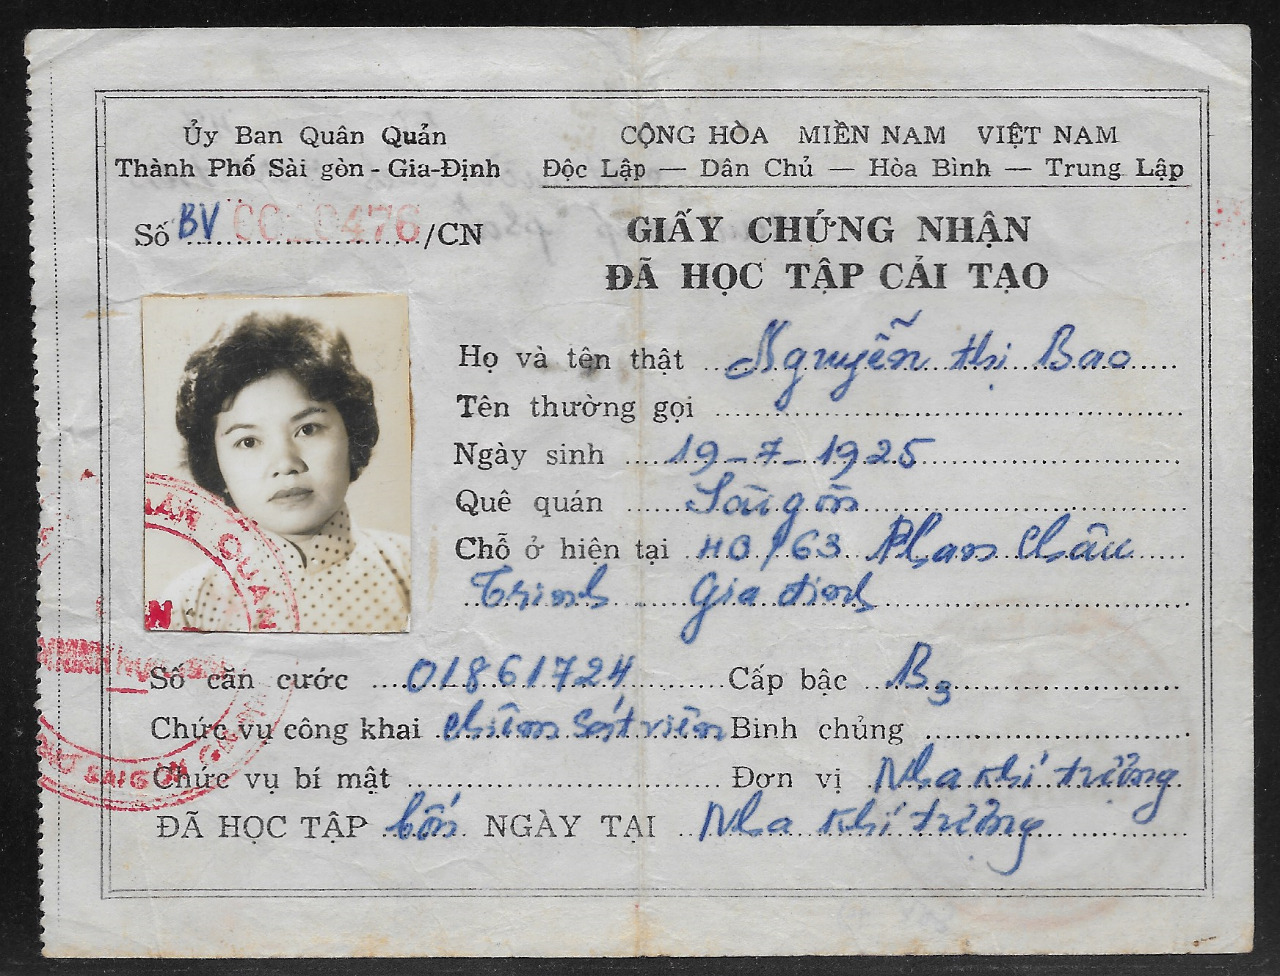 Ủy Ban Quân Quản
Thành Phố Sài gòn - Gia-Định
CỘNG HÒA MIỀN NAM VIỆT NAM
Độc Lập — Dân Chủ — Hòa Bình — Trung Lập
Số BV /CN
GIẤY CHỨNG NHẬN
ĐÃ HỌC TẬP CẢI TẠO
Họ và tên thật Nguyễn thị Bao
Tên thường gọi
Ngày sinh 19-7-1925
Quê quán Sàigòn
Chỗ ở hiện tại HO/63 Phan Châu
Trinh - Gia định
Số căn cước 01861724 Cấp bậc B3
Chức vụ công khai Chiêm sát viên Binh chủng
Chức vụ bí mật Đơn vị Nha khí tượng
ĐÃ HỌC TẬP bốn NGÀY TẠI Nha khí tượng